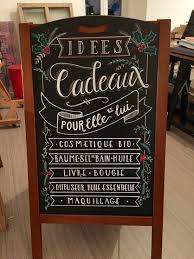 IDEES
Cadeaux
POUR Elle lui
COSMETIQUE BIO
BAUME-SEL DE BAIN-HUILE
LIVRE BOUGIE
DIFUSEUR, HUILE ESSENTIELLE
MAQUILLAGE